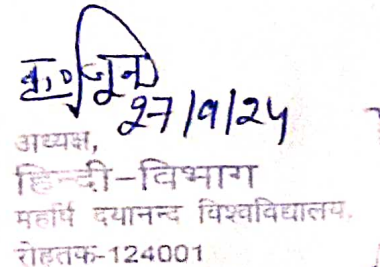 27/9/24
अध्यक्ष,
हिन्दी-विभाग
महर्षि दयानन्द विश्वविद्यालय,
रोहतक-124001